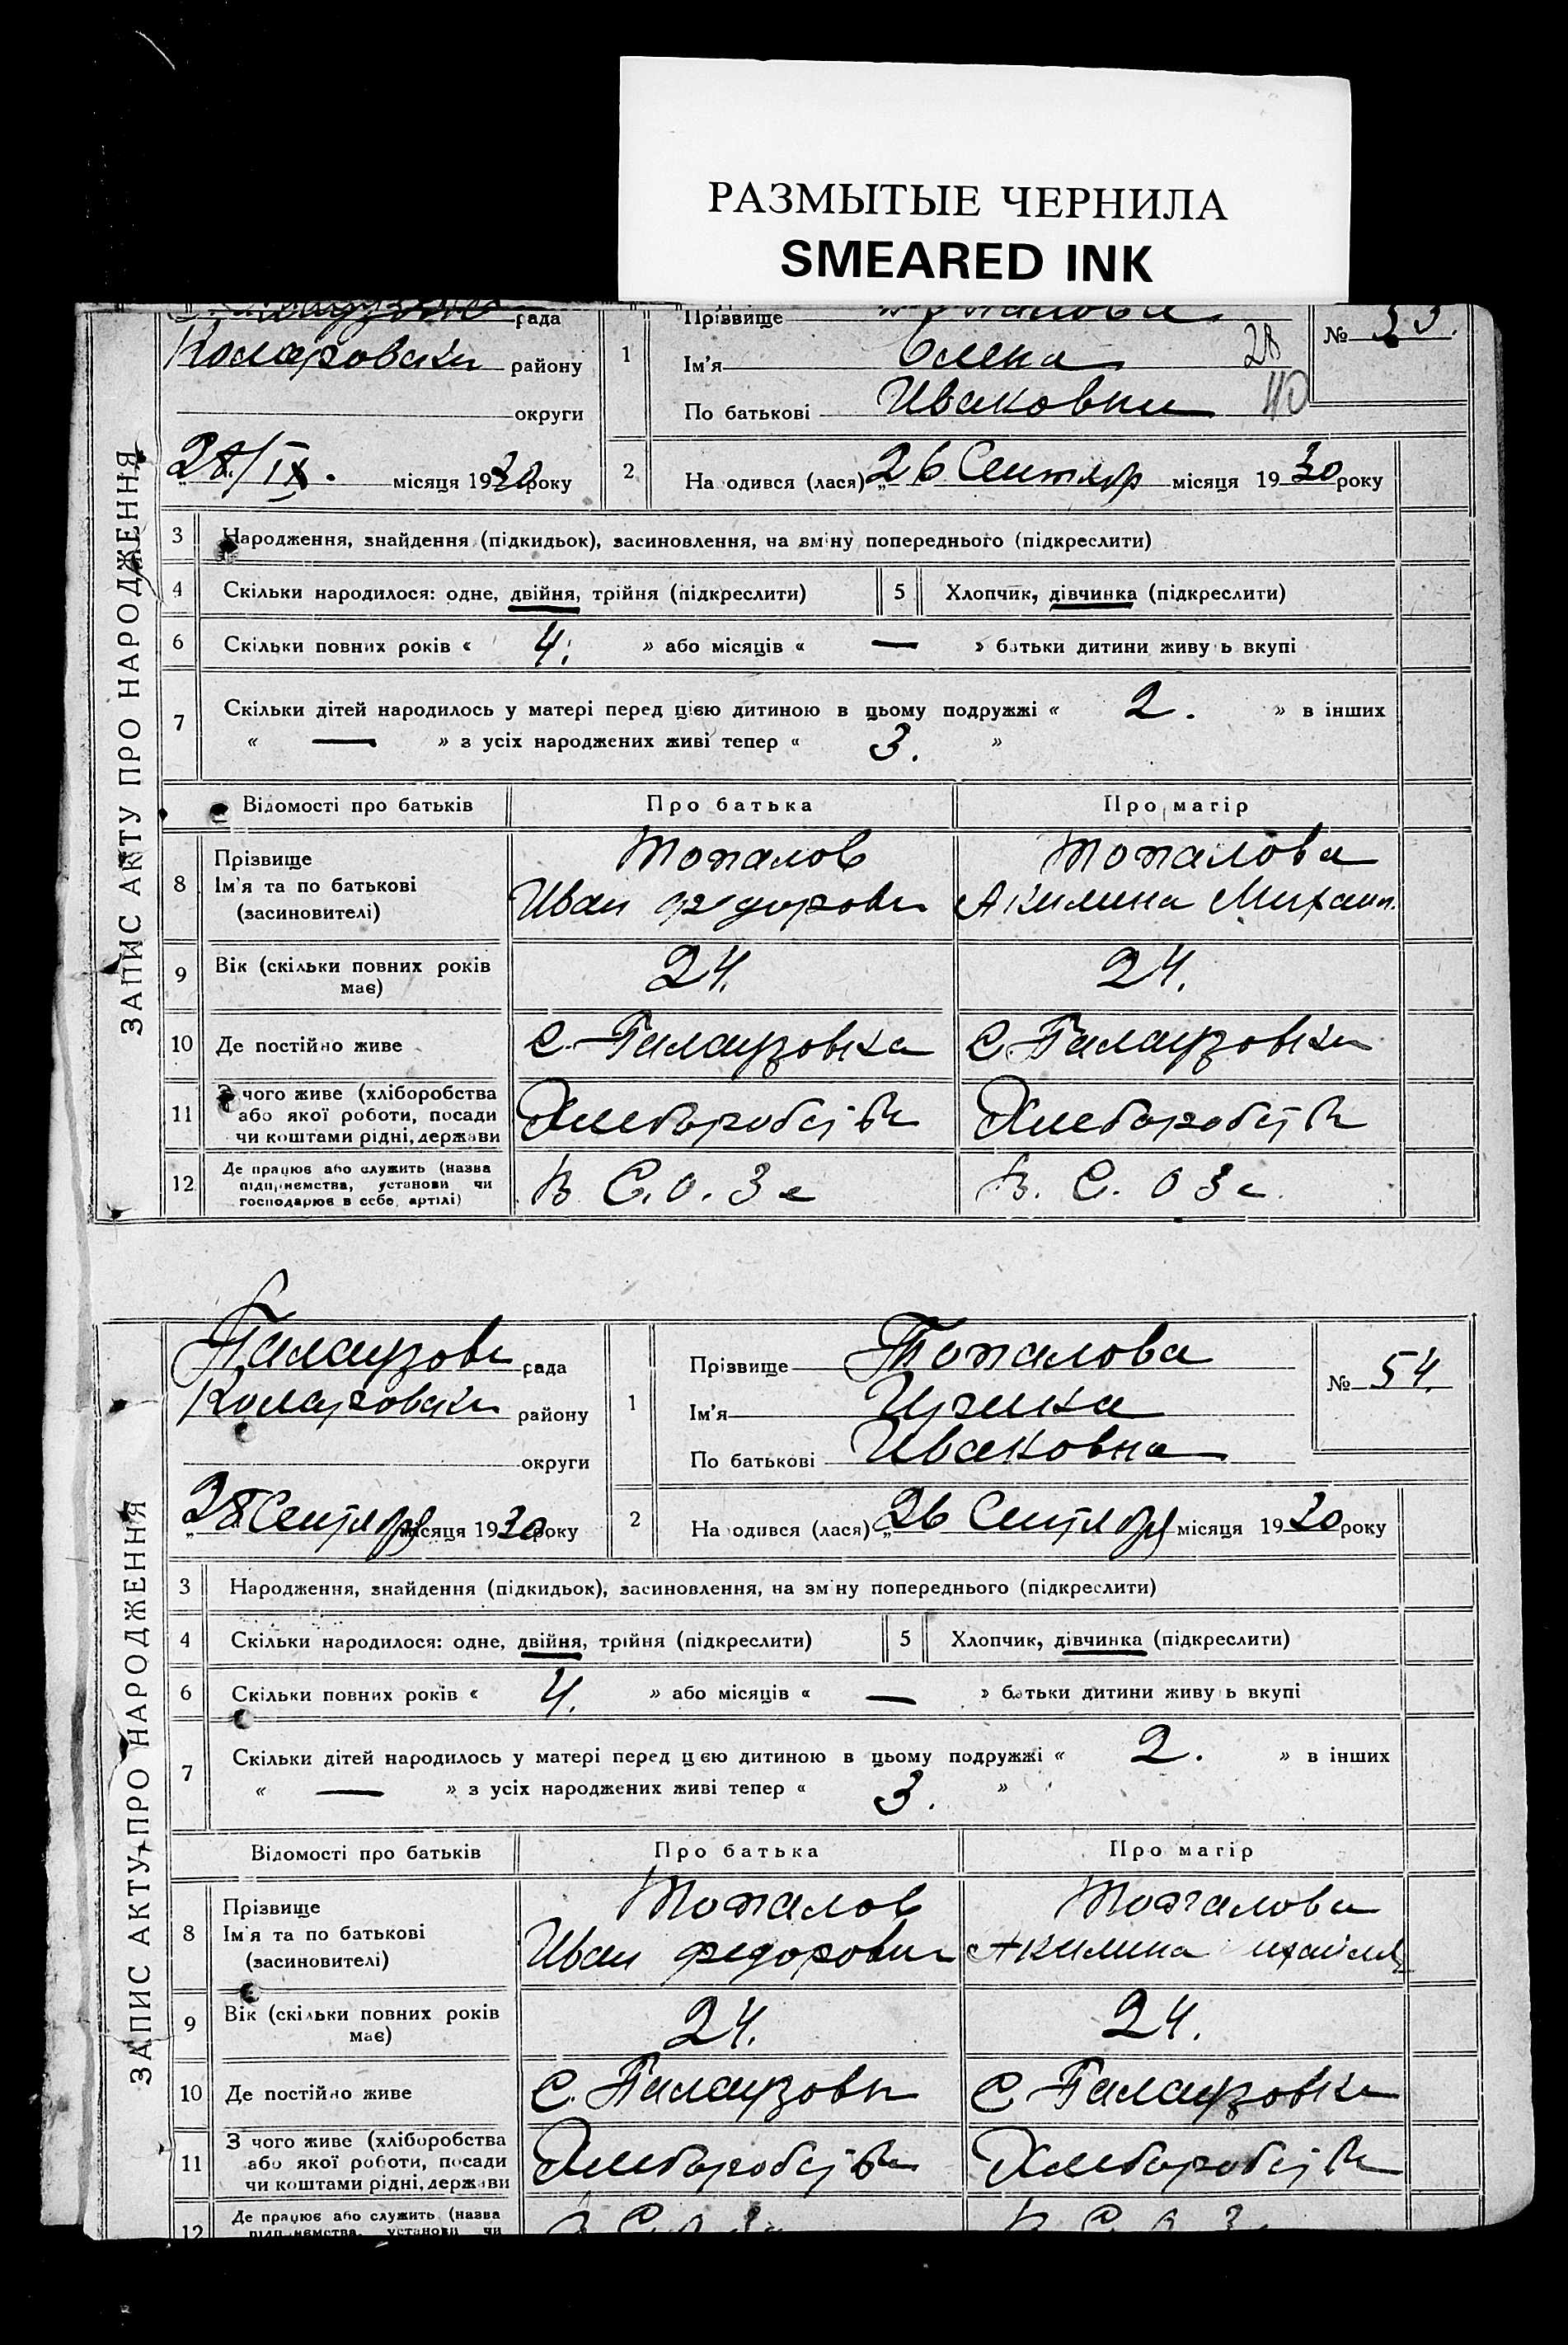 РАЗМЫТЫЕ ЧЕРНИЛА
SMEARED INK
ЗАПИС АКТУ ПРО НАРОДЖЕННЯ
рада
Коларовски району
округи
28/IX. місяця 1930 року
1
Прізвище
Ім'я Олена
По батькові Ивановна
28
40
№ 53.
2
На одився (лася) „26 Сентябр місяця 1930 року
3 Народження, знайдення (підкидьок), засиновлення, на зміну попереднього (підкреслити)
4 Скільки народилося: одне, двійня, трійня (підкреслити)
5 Хлопчик, дівчинка (підкреслити)
6 Скільки повних років « 4. » або місяців « — » батьки дитини живуть вкупі
7 Скільки дітей народилось у матері перед цією дитиною в цьому подружжі « 2. » в інших
« — » з усіх народжених живі тепер « 3. »
Відомості про батьків Про батька Про матір
8 Прізвище Топалов Топалова
Ім'я та по батькові Иван Федорови Акилина Михаил.
(засиновителі)
9 Вік (скільки повних років має) 24. 24.
10 Де постійно живе С. Палаузовка С. Палаузовка
11 З чого живе (хліборобства
або якої роботи, посади
чи коштами рідні, держави
12 Де працює або служить (назва
підприємства, установи чи
господарює в себе, артілі)
В С.О.Зе В. С.ОЗе
ЗАПИС АКТУ ПРО НАРОДЖЕННЯ
Палаузовк рада
Коларовски району
округи
„28 Сентября місяця 1930 року
1
Прізвище Топалова
Ім'я
По батькові Ивановна
№ 54.
2
На одився (лася) „26 Сентября місяця 1930 року
3 Народження, знайдення (підкидьок), засиновлення, на зміну попереднього (підкреслити)
4 Скільки народилося: одне, двійня, трійня (підкреслити)
5 Хлопчик, дівчинка (підкреслити)
6 Скільки повних років « 4. » або місяців « — » батьки дитини живуть вкупі
7 Скільки дітей народилось у матері перед цією дитиною в цьому подружжі « 2. » в інших
« — » з усіх народжених живі тепер « 3. »
Відомості про батьків Про батька Про матір
8 Прізвище Топалов Топалова
Ім'я та по батькові Иван Федорович Акилина
(засиновителі)
9 Вік (скільки повних років має) 24. 24.
10 Де постійно живе С. Палаузовк С. Палаузовка
11 З чого живе (хліборобства
або якої роботи, посади
чи коштами рідні, держави
12 Де працює або служить (назва
підприємства, установи чи